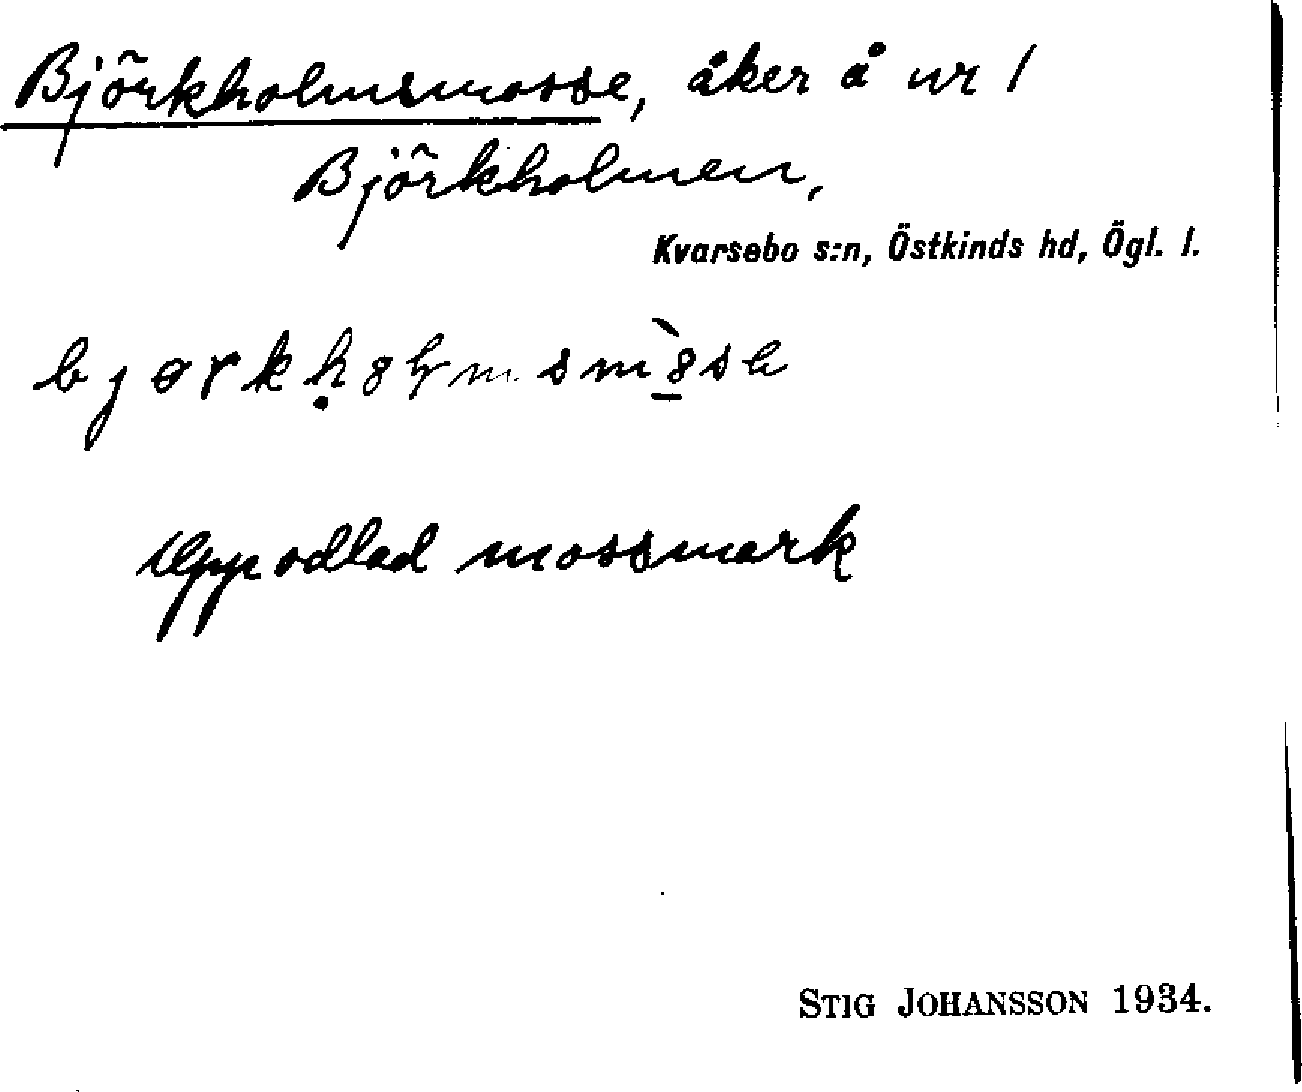 Björkholmsmosse, åker å nr 1
Björkholmen,
Kvarsebo s:n, Östkinds hd, Ögl. l.
Uppodlad mossmark
STIG JOHANSSON 1934.